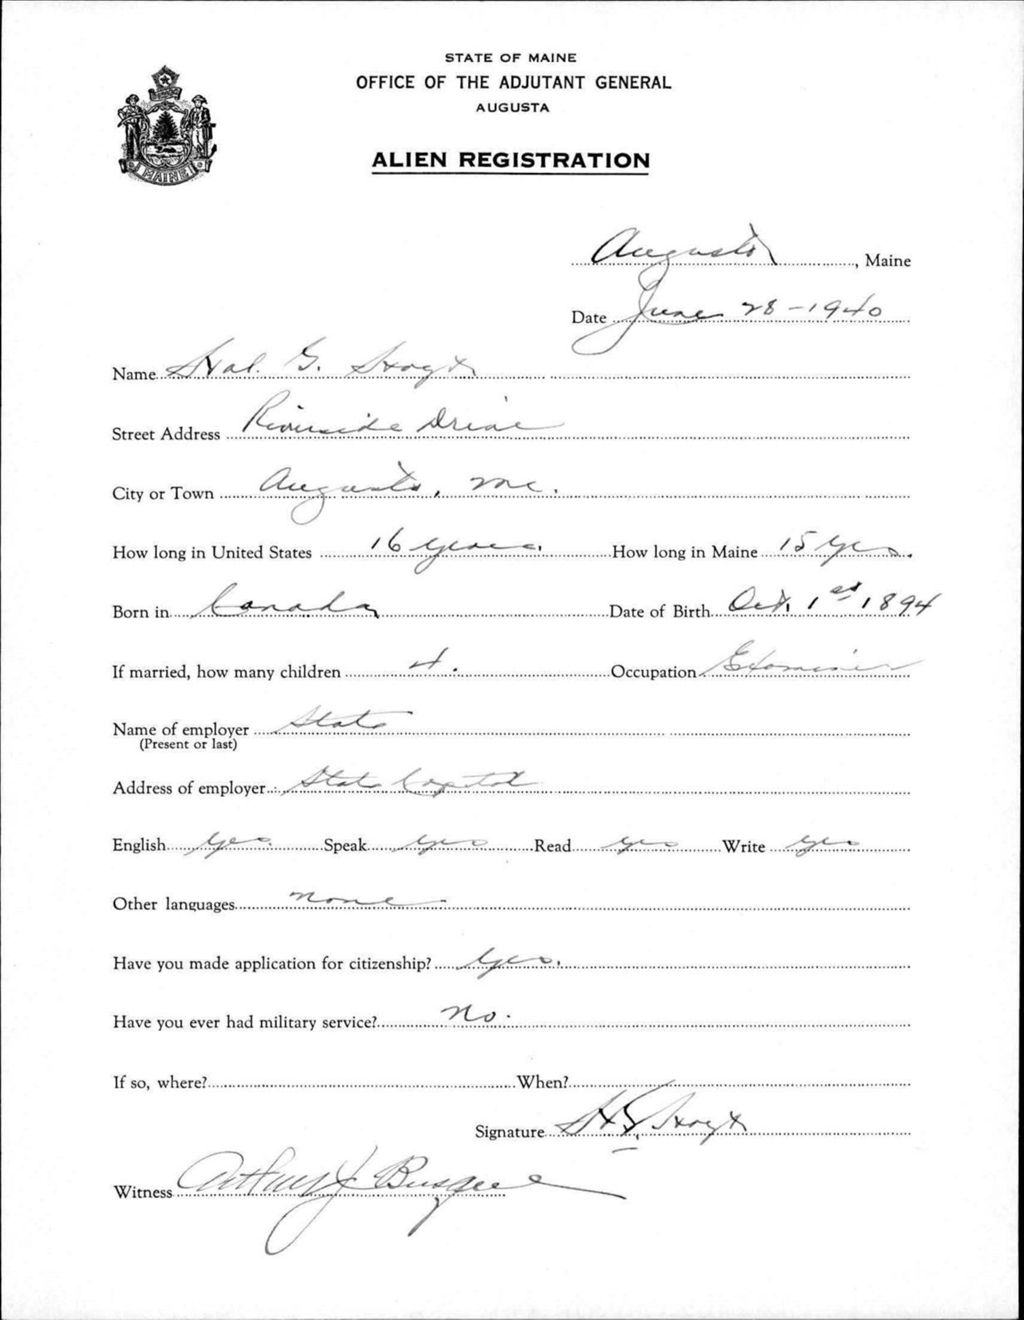 STATE OF MAINE
OFFICE OF THE ADJUTANT GENERAL
AUGUSTA
ALIEN REGISTRATION
MAINE
Augusta, Maine
Date June 28-1940
Name Hal. G. Hoyt
Street Address Riverside Drive
City or Town Augusta, Me.
How long in United States 16 years. How long in Maine 15 yrs.
Born in Canada Date of Birth Oct. 1st 1894
If married, how many children 4. Occupation Examiner
Name of employer State
(Present or last)
Address of employer State Capitol
English yes. Speak yes Read yes Write yes
Other languages none
Have you made application for citizenship? Yes.
Have you ever had military service? No.
If so, where? When?
Signature H G Hoyt
Witness Arthur J Busque